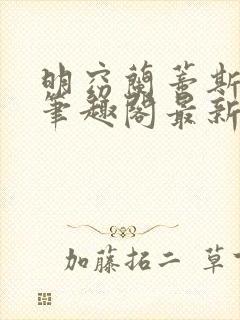 明蘭蓋斯
筆趣閣最新
加藤拓二 草